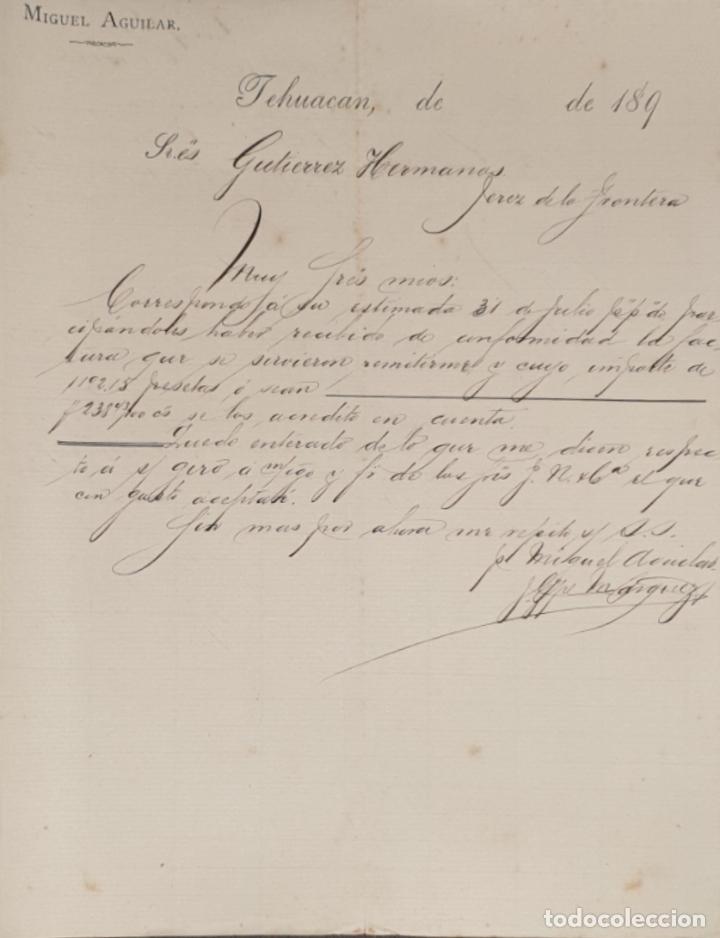 MIGUEL AGUILAR.
Tehuacan, de de 189
Sres Gutierrez Hermanos
Jerez de la Frontera
Muy Sres mios:
Correspondo á su estimada 31 de Julio de par
ticipándoles haber recibido de conformidad la fac-
tura que se sirvieron remitirme y cuyo importe de
pesetas ó sean
se los acredito en cuenta.
Quedo enterado de lo que me dicen respec
to á s/ giro á m/cgo y f. de los J. N. & Ca el que
con gusto aceptaré.
Sin mas por ahora me repito s/ S.S.
p Miguel Aguilar
todocoleccion
todocoleccion.net